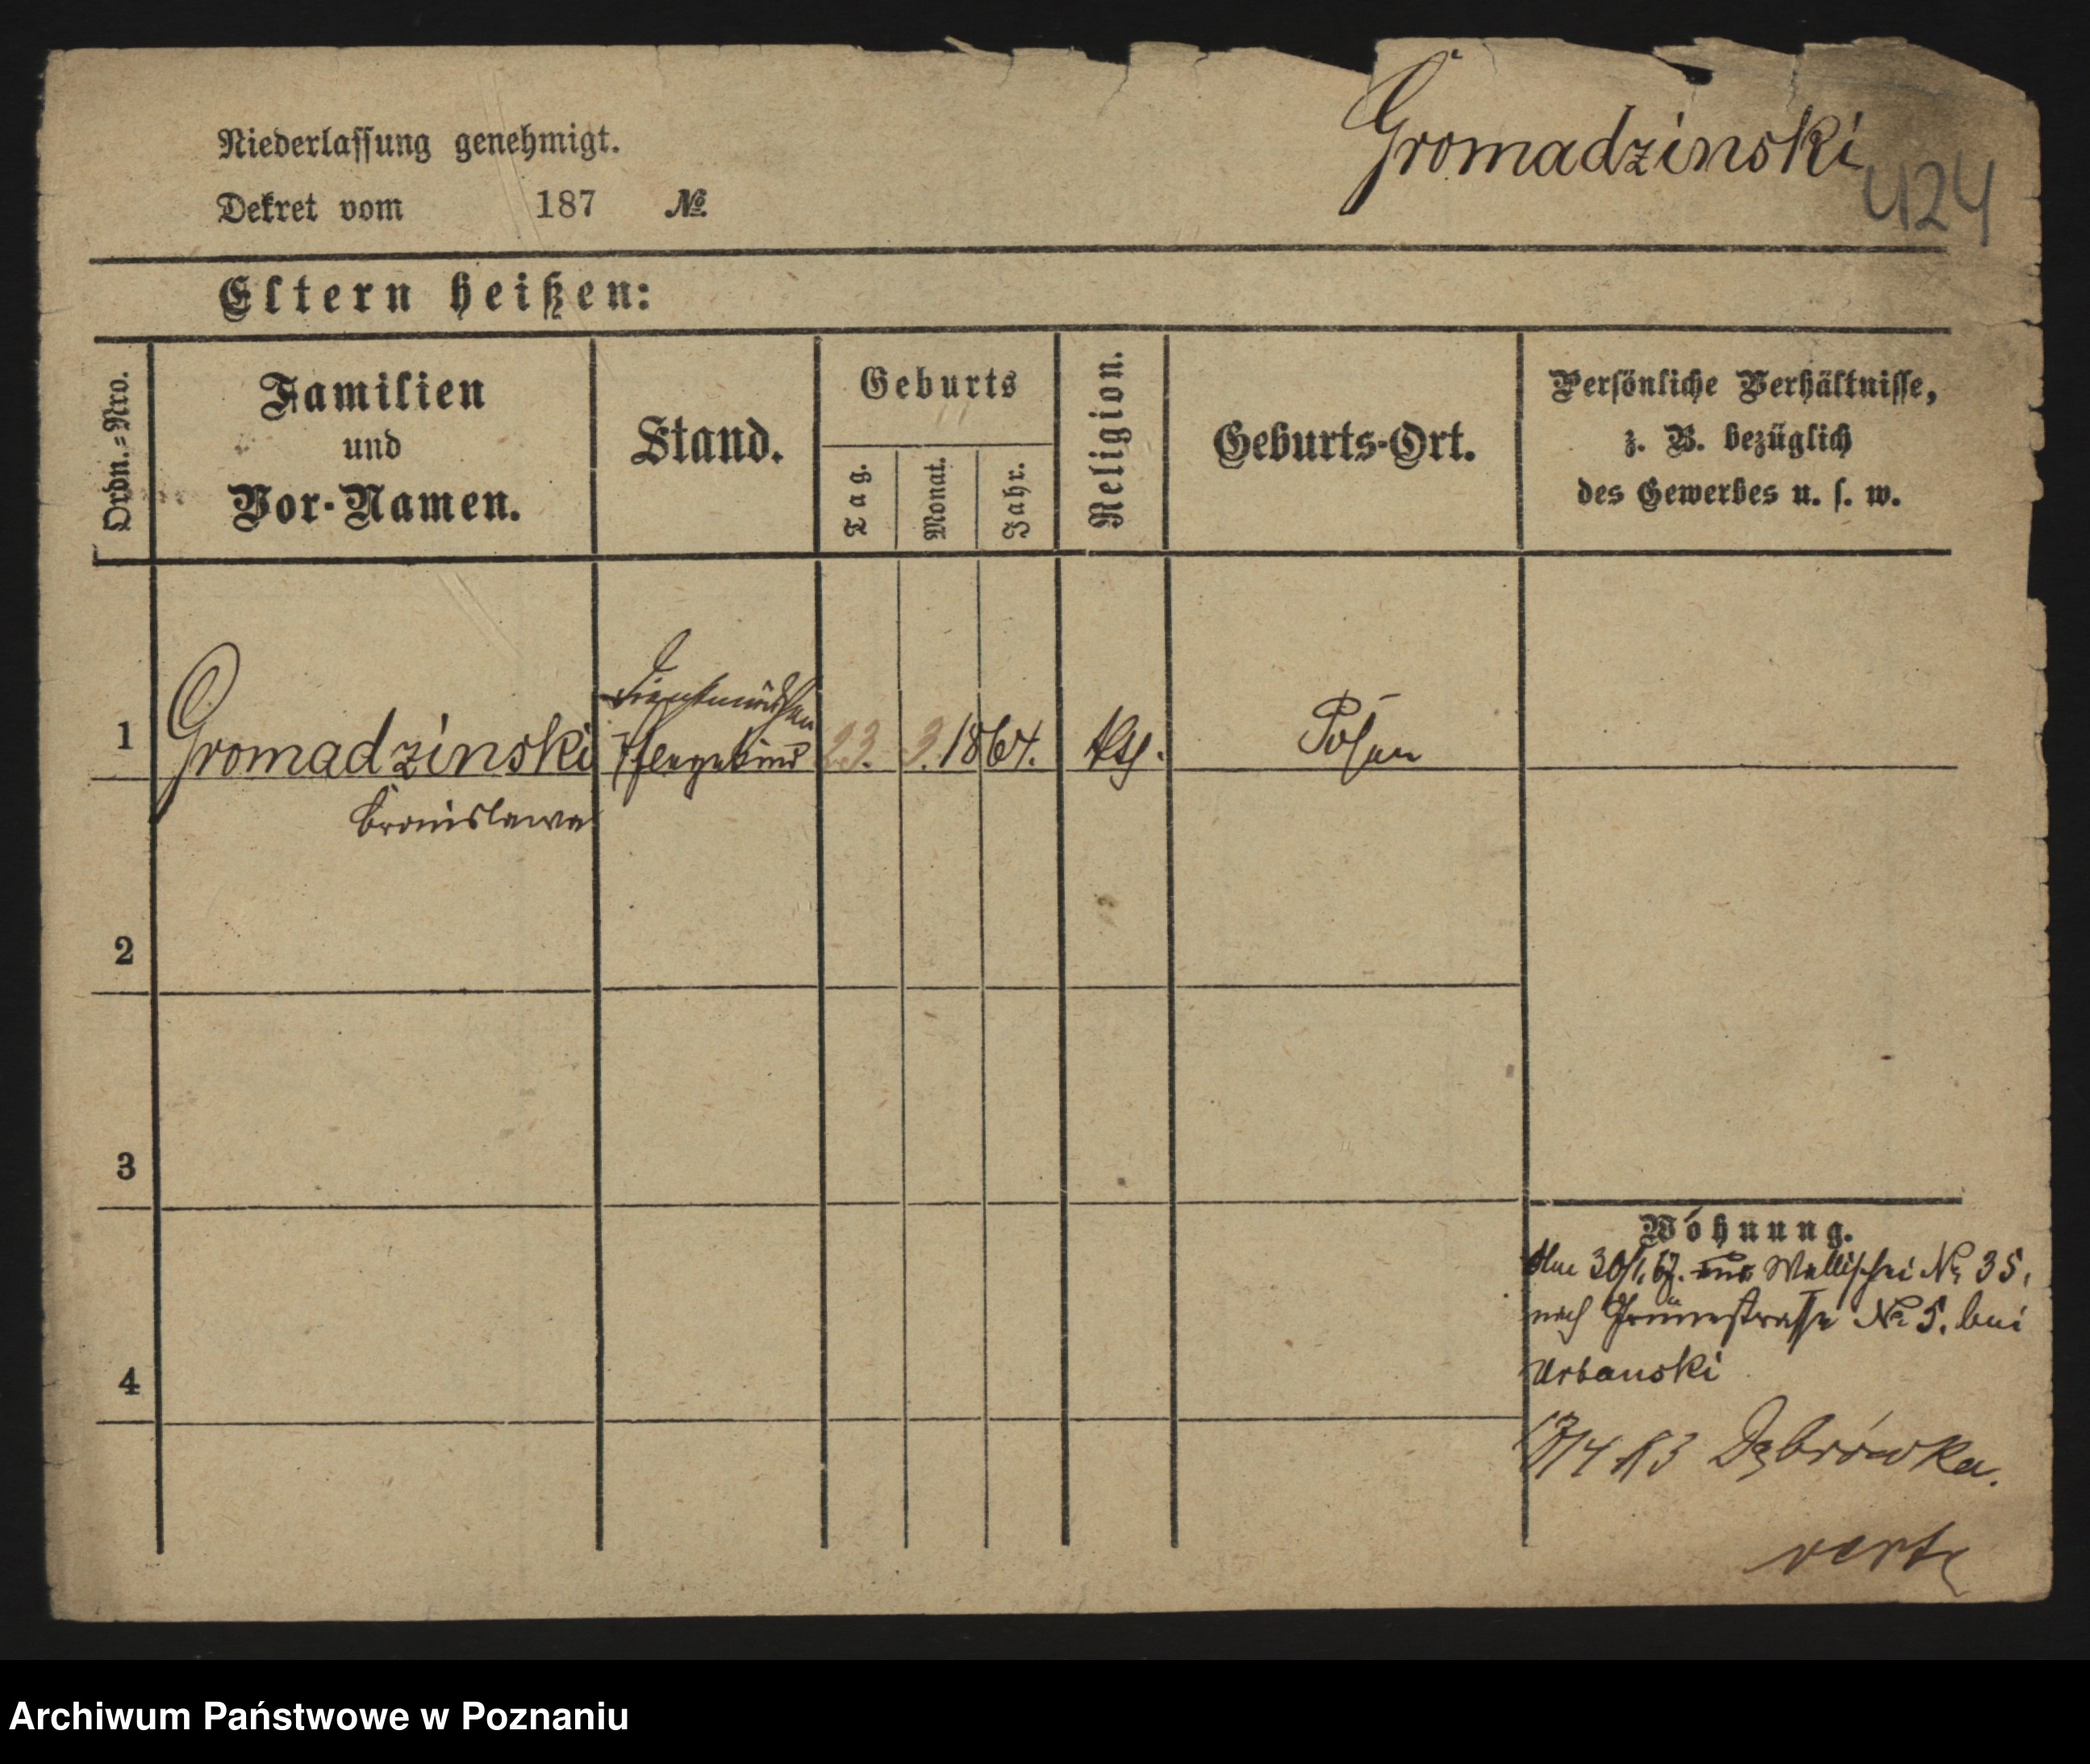 Niederlassung genehmigt.
Dekret vom 187 №
Gromadzinski
424
Eltern heißen:
Ordn.=Nro.
Familien
und
Vor-Namen.
Stand.
Geburts
Tag.
Monat.
Jahr.
Religion.
Geburts-Ort.
Persönliche Verhältnisse,
z. B. bezüglich
des Gewerbes u. s. w.
Dienstmädchen
1 Gromadzinski Pflegekind 23. 3. 1864. Posen
Bronislawa
2
3
4
Wohnung.
30/1. 67. Wallischei № 35,
nach Grünestrasse № 5. bei
Urbanski
/4 83 Dąbrówka.
verte
Archiwum Państwowe w Poznaniu